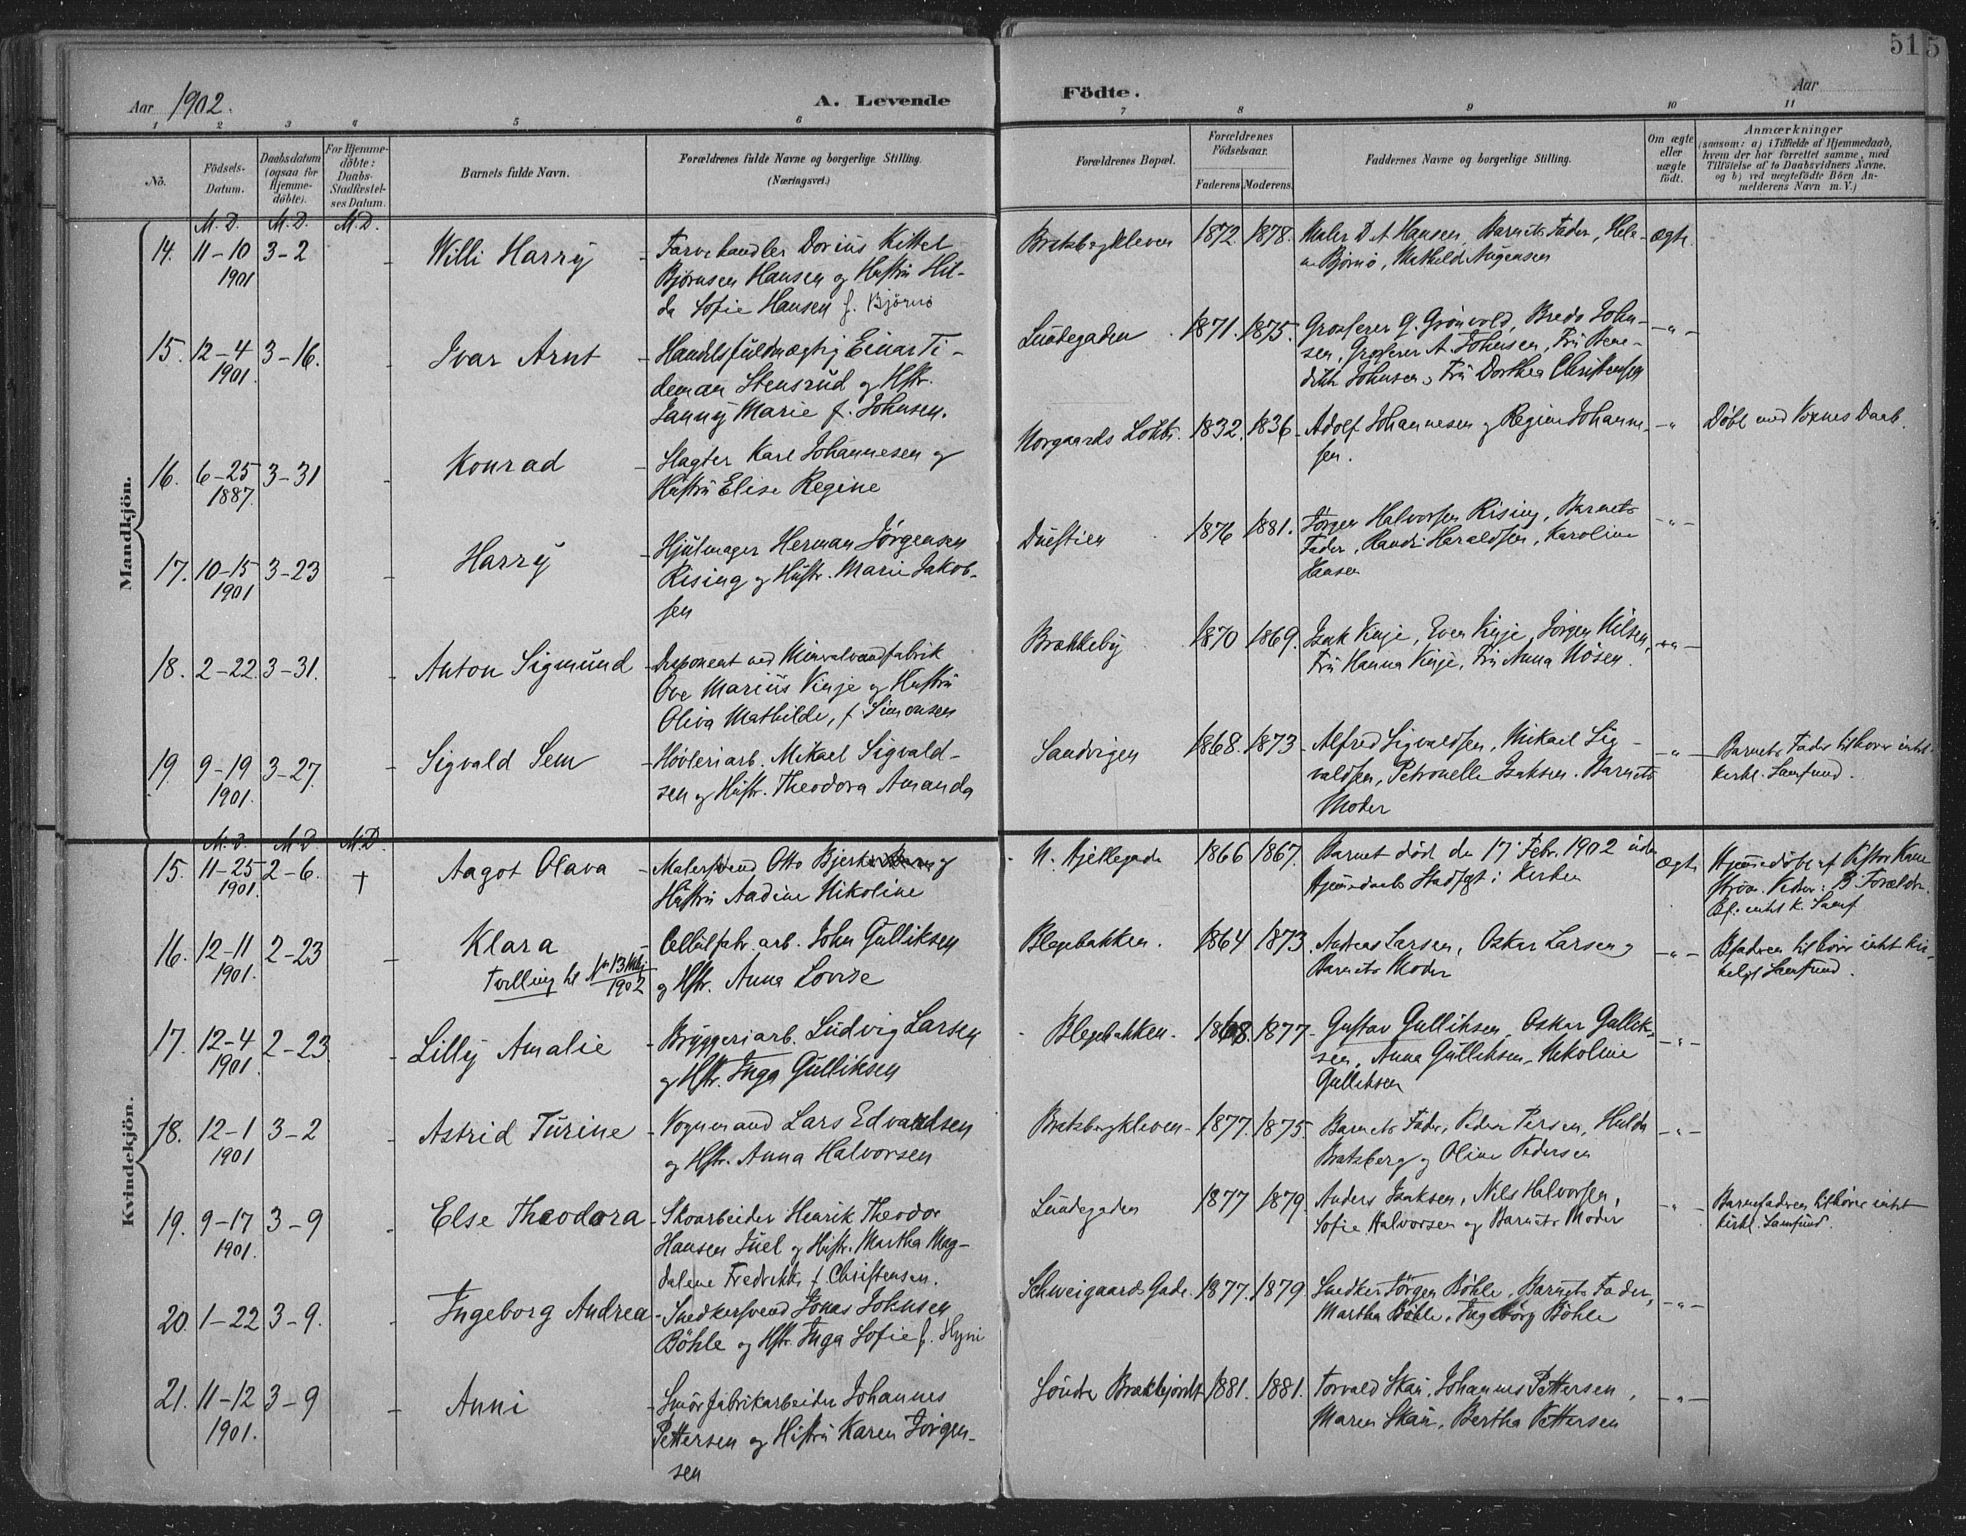 51
5
Aar 1902.
A. Levende
Födte.
Aar
1 2 3 4 5 6 7 8 9 10 11
No.
Födsels-Datum.
Daabsdatum (ogsaa for Hjemme-döbte).
For Hjemme-döbte: Daabs-Stadfæstel-ses Datum.
Barnets fulde Navn.
Forældrenes fulde Navne og borgerlige Stilling. (Næringsvei.)
Forældrenes Bopæl.
Forældrenes Födselsaar.
Faderens. Moderens.
Faddernes Navne og borgerlige Stilling.
Om ægte eller uægte födt.
Anmærkninger
(saasom: a) i Tilfælde af Hjemmedaab,
hvem der har forrettet samme, med
Tilföielse af to Daabsvidners Navne,
og b) ved uægtefödte Börn An-
melderens Navn m. V.)
Mandkjön.
M. D. M. D. M. D.
14. 11-10 1901 3-2 - Willi Harry - Farvehandler Dorius Kittel
Bjørnsen Hansen og Hustru Hil-
da Sofie Hansen f. Björnö
Bratsbergkleven 1872. 1878. Maler D. A. Hansen, Barnets Fader, Hele-
ne Björnö, Mathilde Aügensen
ægte
15. 12-4 1901. 3-16. - Ivar Arnt - Handelsfuldmægtig Einar Ti-
deman Stensrud og Hstr.
Janny Marie f. Johnsen.
Lundegaden. 1871. 1875. Grosserer G. Grönvold, Bredo John-
sen, Grosserer A. Johnsen, Fru Bene-
dikte Johnsen, Fru Dorthea Christensen
-"-
16. 6-25 1887. 3-31 - Konrad - Slagter Karl Johannesen og
Hustru Elise Regine
Norgaards Lökke. 1832. 1836. Adolf Johannesen og Regine Johanne-
sen.
-"- Døbt med Voxnes Daab.
17. 10-15 1901 3-23 - Harry - Hjulmager Herman Jørgensen
Rising og Hustr. Marie Jakob-
sen
Duestien 1876 1881. Jørgen Halvorsen Rising, Barnets
Fader, Haraldsen, Karoline
Hansen
-"-
18. 2-22 3-31. - Anton Sigmund - Disponent ved Mineralvandfabrik
Ove Marius Vinje og Hustru
Oliva Mathilde, f. Simonsen
Brækkeby 1870 1869. Isak Vinje, Even Vinje, Jørgen Nilsen,
Fru Hanna Vinje, Fru Anna Nösen.
-"-
19 9-19 1901. 3-27. - Sigvald Sem - Høvleriarb. Mikael Sigvald-
sen og Hustr. Theodora Amanda
Sandvigen 1868. 1873 Alfred Sigvaldsen, Mikael Sig-
valdsen, Petronelle Isaksen. Barnets
Moder
-"- Barnets Fader tilhører intet
kirkl. Samfund.
Kvindekjön.
M. D. M. D. M. D.
15. 11-25 1901. 2-6. + Aagot Olava - Malersvend Otto og
Hustru Aadine Nikoline
N. Hjellegade 1866 1867. Barnet død den 17 Febr. 1902 uden
Hjemmedaabs Stadfgt i Kirken
ægte Hjemmedöbt af
Forældr.
intet k. Samf.
16. 12-11 1901. 2-23 - Klara
Tvilling til No 13 Mkj 1902
- Cellulfabr. arb. John Gulliksen
og Hstr. Anna Lovise
Blegebakken. 1864 1873. Andreas Larsen, Oskar Larsen og
Barnets Moder
-"- Bfaderen tilhører intet kir-
keligt Samfund.
17. 12-4 1901. 2-23 - Lilly Amalie - Bryggeriarb. Ludvig Larsen
og Hstr. Inga Gulliksen
Blegebakken. 1868. 1877. Gustav Gulliksen, Oskar Gullik-
sen, Anna Gulliksen, Nikoline
Gulliksen
-"-
18. 12-1 1901 3-2 - Astrid Turine - Vognmand Lars Edvardsen
og Hstr. Anna Halvorsen
Bratsbergkleven 1877. 1875. Barnets Fader, Peder Persen, Hulda
Bratsberg og Oline Pedersen
-"-
19. 9-17 1901. 3-9 - Else Theodora - Skoarbeider Henrik Theodor
Hansen Juel og Hustr. Martha Mag-
dalene Fredrikke f. Christensen.
Lundegaden 1877 1879. Anders Isaksen, Nils Halvorsen,
Sofie Halvorsen og Barnets Moder
-"- Barnefaderen tilhører intet
kirkl. Samfund.
20. 1-22 3-9. - Ingeborg Andrea - Snedkersvend Jonas Johnsen
Böhle og Hstr. Inga Sofie f. Hyni
Schweigaards Gade. 1877. 1879. Snedker Jörgen Böhle, Barnets Fader,
Martha Böhle, Ingeborg Böhle
-"-
21. 11-12 1901. 3-9 - Anni - Smörfabrikarbeider Johannes
Pettersen og Hustru Karen Jörgen-
sen
Søndre Brækkejordet 1881. 1881. Torvald Skau, Johannes Pettersen,
Maren Skau, Bertha Pettersen
-"-